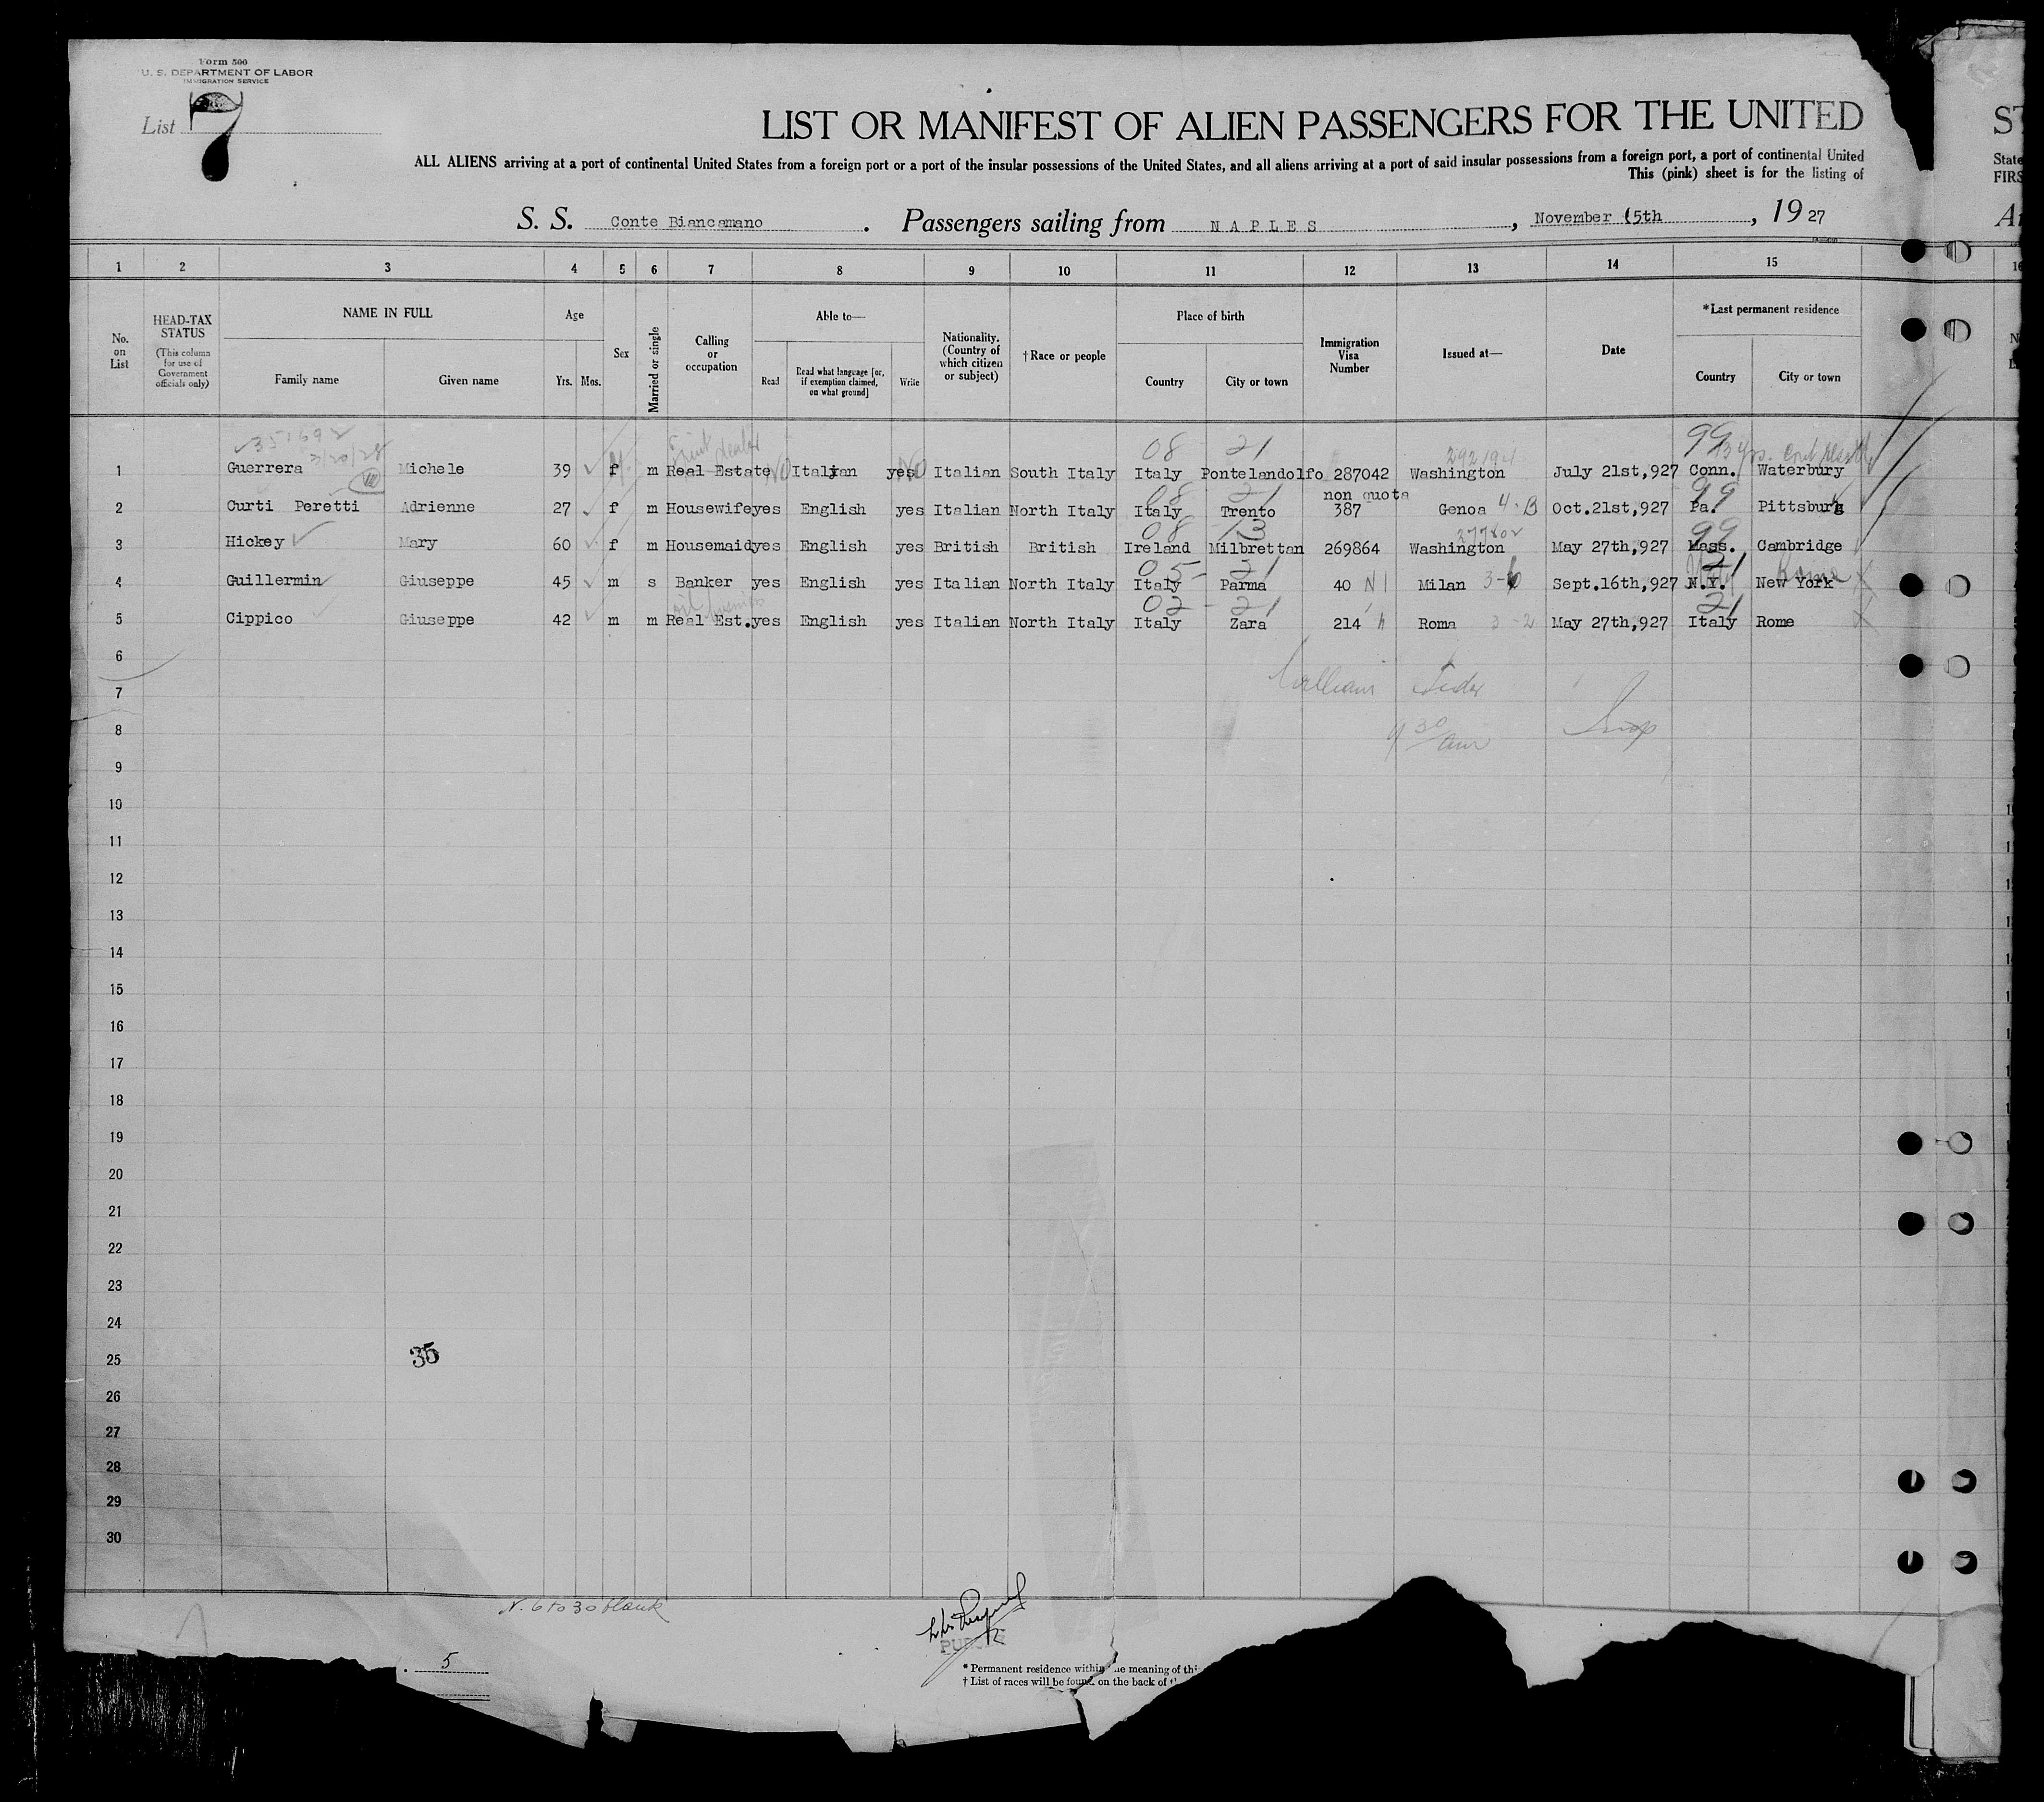 Form 500
U. S. DEPARTMENT OF LABOR
IMMIGRATION SERVICE
List 7
LIST OR MANIFEST OF ALIEN PASSENGERS FOR THE UNITED
ST
ALL ALIENS arriving at a port of continental United States from a foreign port or a port of the insular possessions of the United States, and all aliens arriving at a port of said insular possessions from a foreign port, a port of continental United
State
This (pink) sheet is for the listing of
FIRS
S. S. Conte Biancamano . Passengers sailing from NAPLES , November 15th , 19 27
1 2 3 4 5 6 7 8 9 10 11 12 13 14 15
No. on List
HEAD-TAX STATUS
(This column for use of Government officials only)
NAME IN FULL
Family name Given name
Age
Yrs. Mos.
Sex
Married or single
Calling or occupation
Able to—
Read
Read what language [or, if exemption claimed, on what ground]
Write
Nationality. (Country of which citizen or subject)
†Race or people
Place of birth
Country City or town
Immigration Visa Number
Issued at—
Date
*Last permanent residence
Country City or town
351692
3/20/28
Fruit dealer
08 21
292194
99
1 Guerrera Michele 39 f m Real Estate NO Italian yes NO Italian South Italy Italy Pontelandolfo 287042 Washington July 21st,927 Conn. Waterbury
08 21
non quota
99
2 Curti Peretti Adrienne 27 f m Housewife yes English yes Italian North Italy Italy Trento 387 Genoa 4-B Oct.21st,927 Pa. Pittsburg
08 13
277802
99
3 Hickey Mary 60 f m Housemaid yes English yes British British Ireland Milbrettan 269864 Washington May 27th,927 Mass. Cambridge
05- 21
21
4 Guillermin Giuseppe 45 m s Banker yes English yes Italian North Italy Italy Parma 40 N Milan 3- Sept.16th,927 N.Y. New York Roma
02- 21
21
5 Cippico Giuseppe 42 m m Real Est. yes English yes Italian North Italy Italy Zara 214 Roma 3-2 May 27th,927 Italy Rome
6
7
William
8
9 30 am
9
10
11
12
13
14
15
16
17
18
19
20
21
22
23
24
25
35
26
27
28
29
30
N. 6 to 30 blank
5
* Permanent residence within the meaning of thi
† List of races will be found on the back of